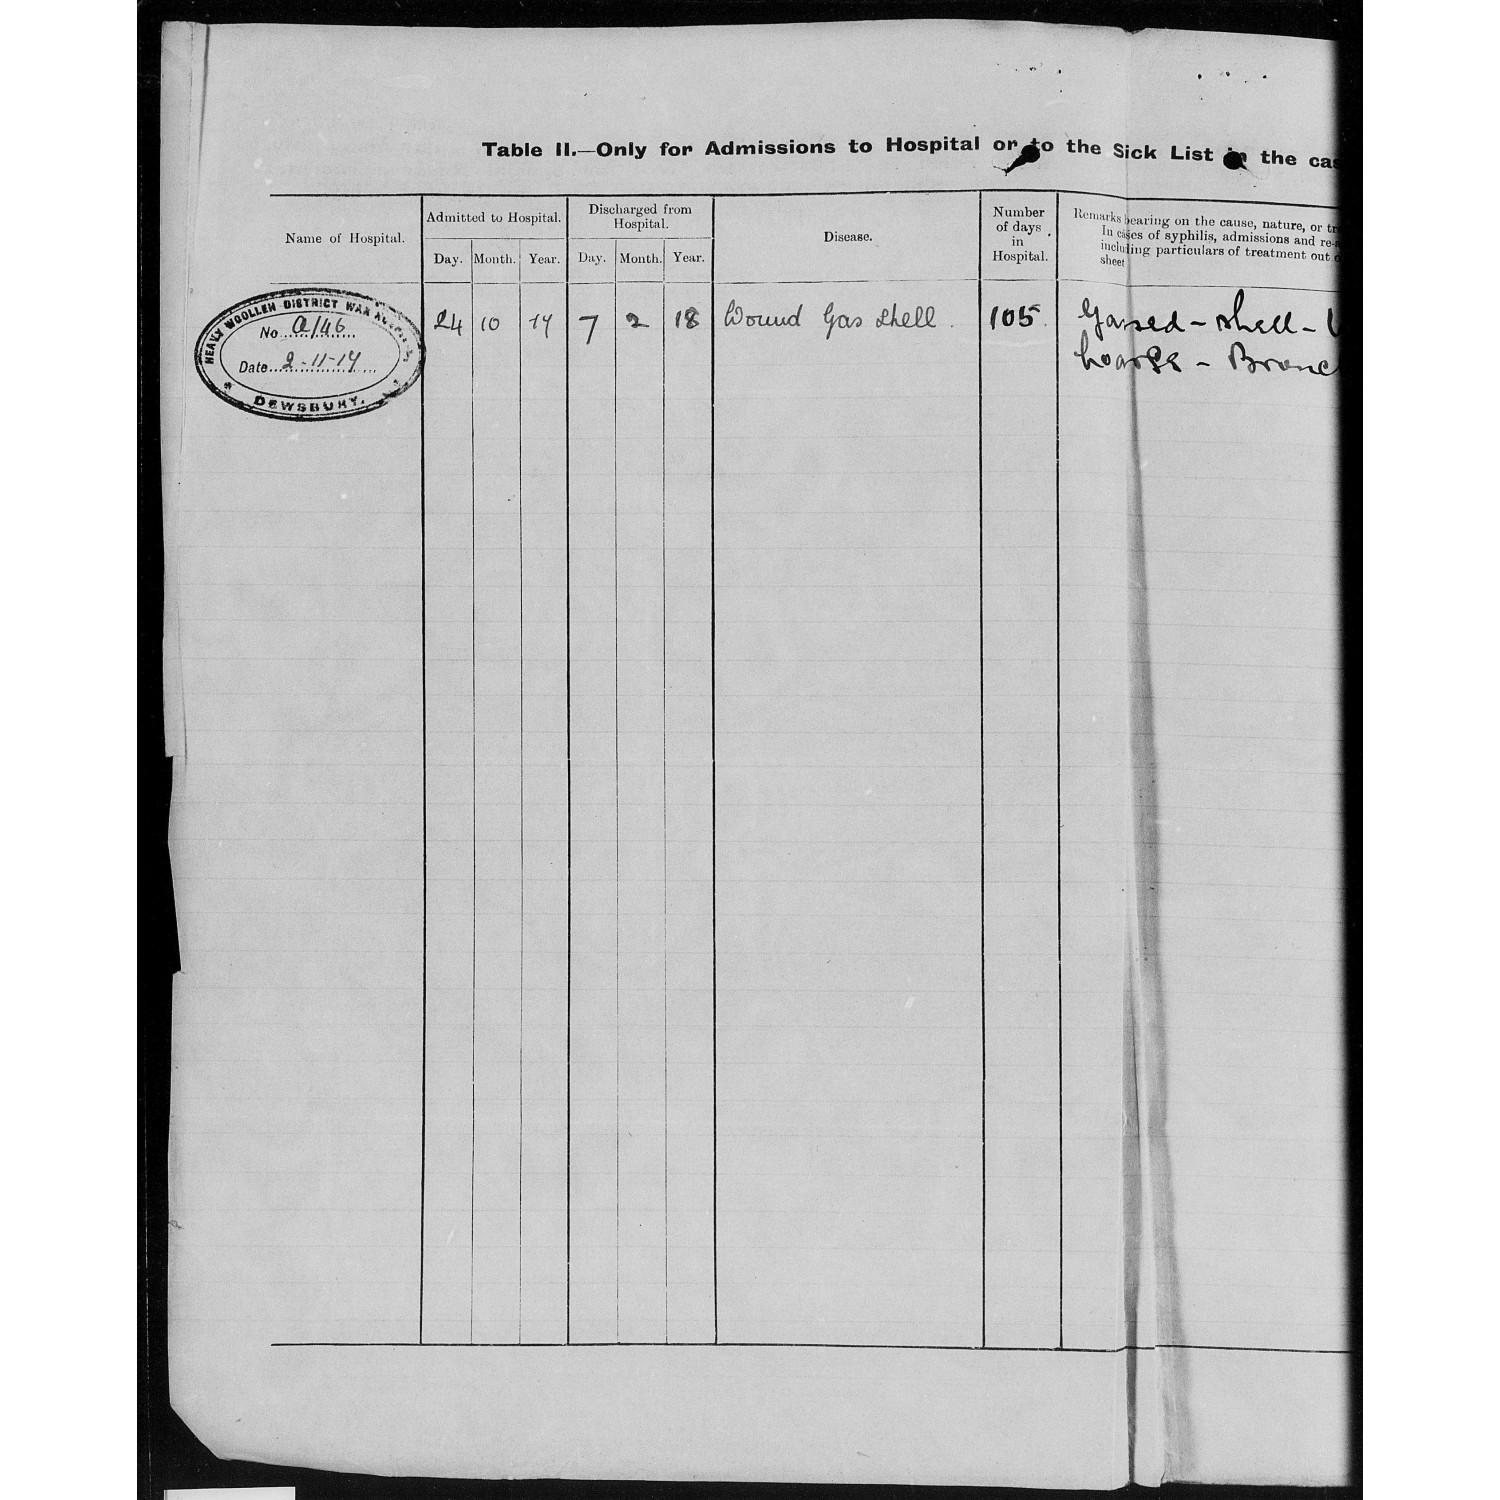 Table II.—Only for Admissions to Hospital or to the Sick List in the cas
Name of Hospital.
Admitted to Hospital.
Discharged from
Hospital.
Disease.
Number
of days
in
Hospital.
Remarks bearing on the cause, nature, or tr
In cases of syphilis, admissions and re-a
including particulars of treatment out o
sheet
Day. Month. Year. Day. Month. Year.
HEAVY WOOLLEN DISTRICT WAR
No. a/46
Date 2-11-17
DEWSBURY.
24 10 17 7 2 18 Wound Gas Shell. 105.
Gassed - shell -
hoarse - Bronc